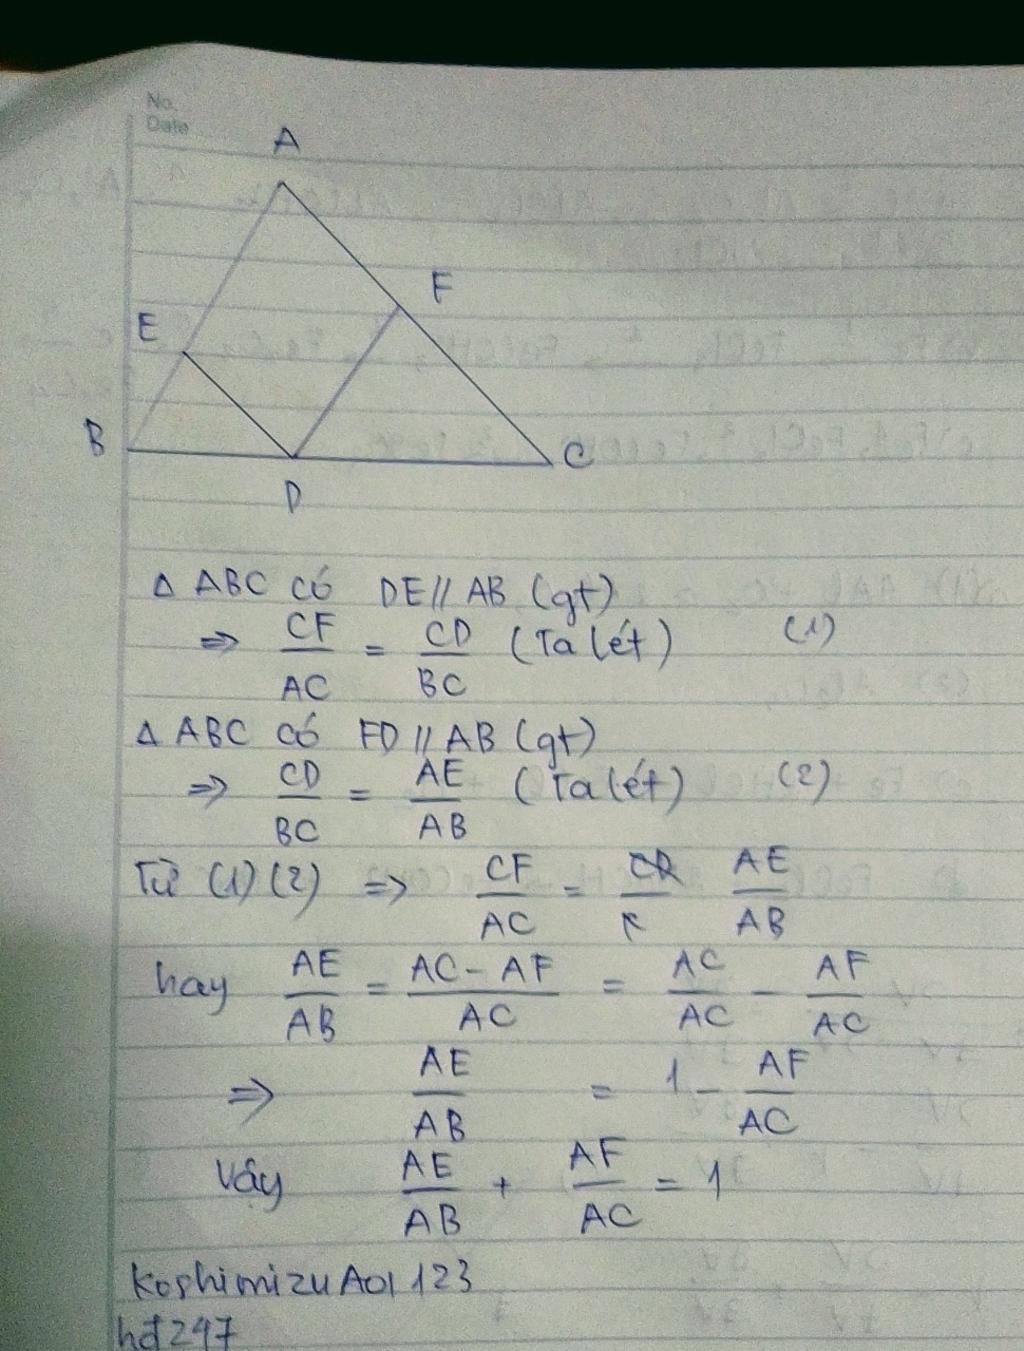 No.
Date
A
F
E
B
C
D
Δ ABC có DE // AB (gt)
⇒ CF/AC = CD/BC (Ta lét) (1)
Δ ABC có FD // AB (gt)
⇒ CD/BC = AE/AB (Ta lét) (2)
Từ (1) (2) ⇒ CF/AC = AE/AB
hay AE/AB = AC - AF/AC = AC/AC - AF/AC
⇒ AE/AB = 1 - AF/AC
Vậy AE/AB + AF/AC = 1
Koshimizu Aoi 123
hđ 247